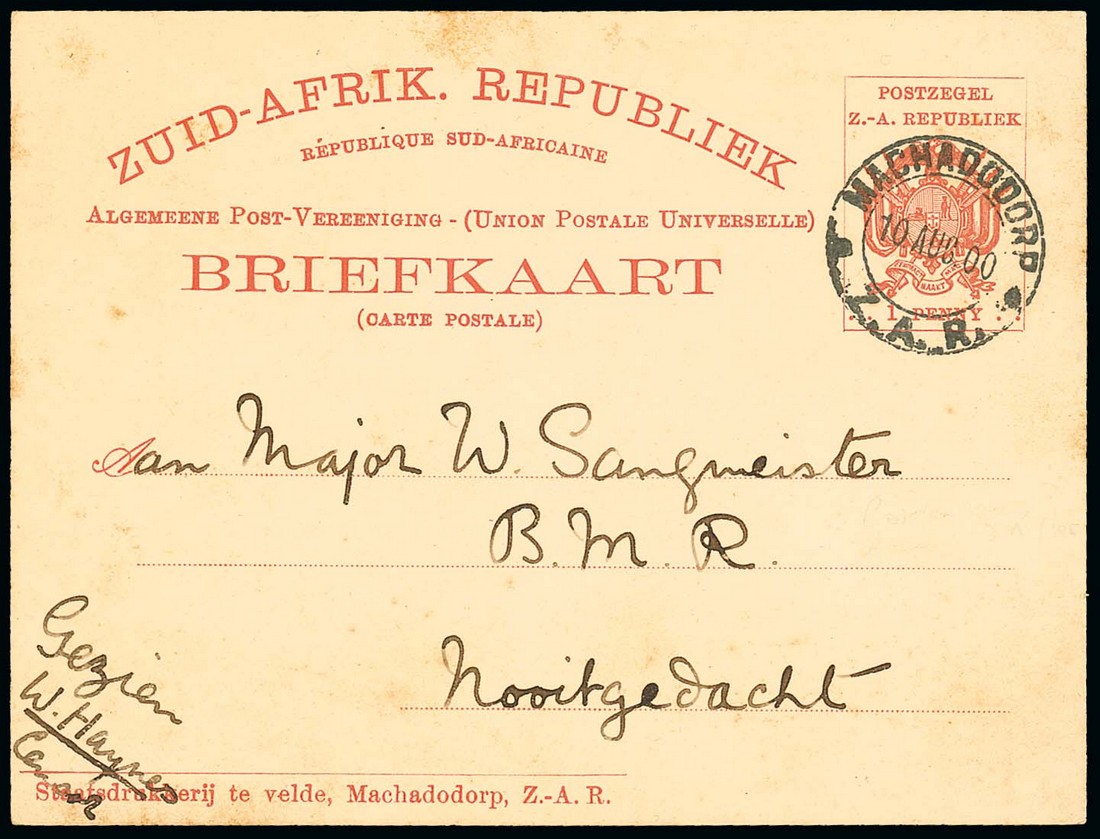 ZUID-AFRIK. REPUBLIEK
RÉPUBLIQUE SUD-AFRICAINE
ALGEMEENE POST-VEREENIGING - (UNION POSTALE UNIVERSELLE)
BRIEFKAART
(CARTE POSTALE)
POSTZEGEL
Z.-A. REPUBLIEK
MAAKT
1 PENNY
MACHADODORP
10 AUG. 00
Z.A.R.
Aan Major W. Sangmeister
B. M. R.
Nooitgedacht
Gezien
W. Haynes
Censor
Staatsdrukkerij te velde, Machadodorp, Z.-A. R.